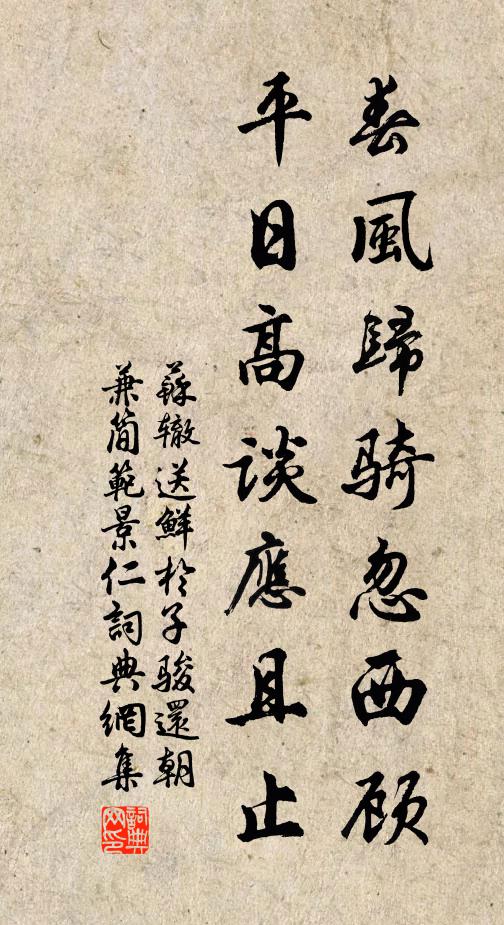 春風歸騎忽西顧
平日高談應且止
蘇轍送鮮於子駿還朝
兼簡範景仁詞典網集
詞典网印